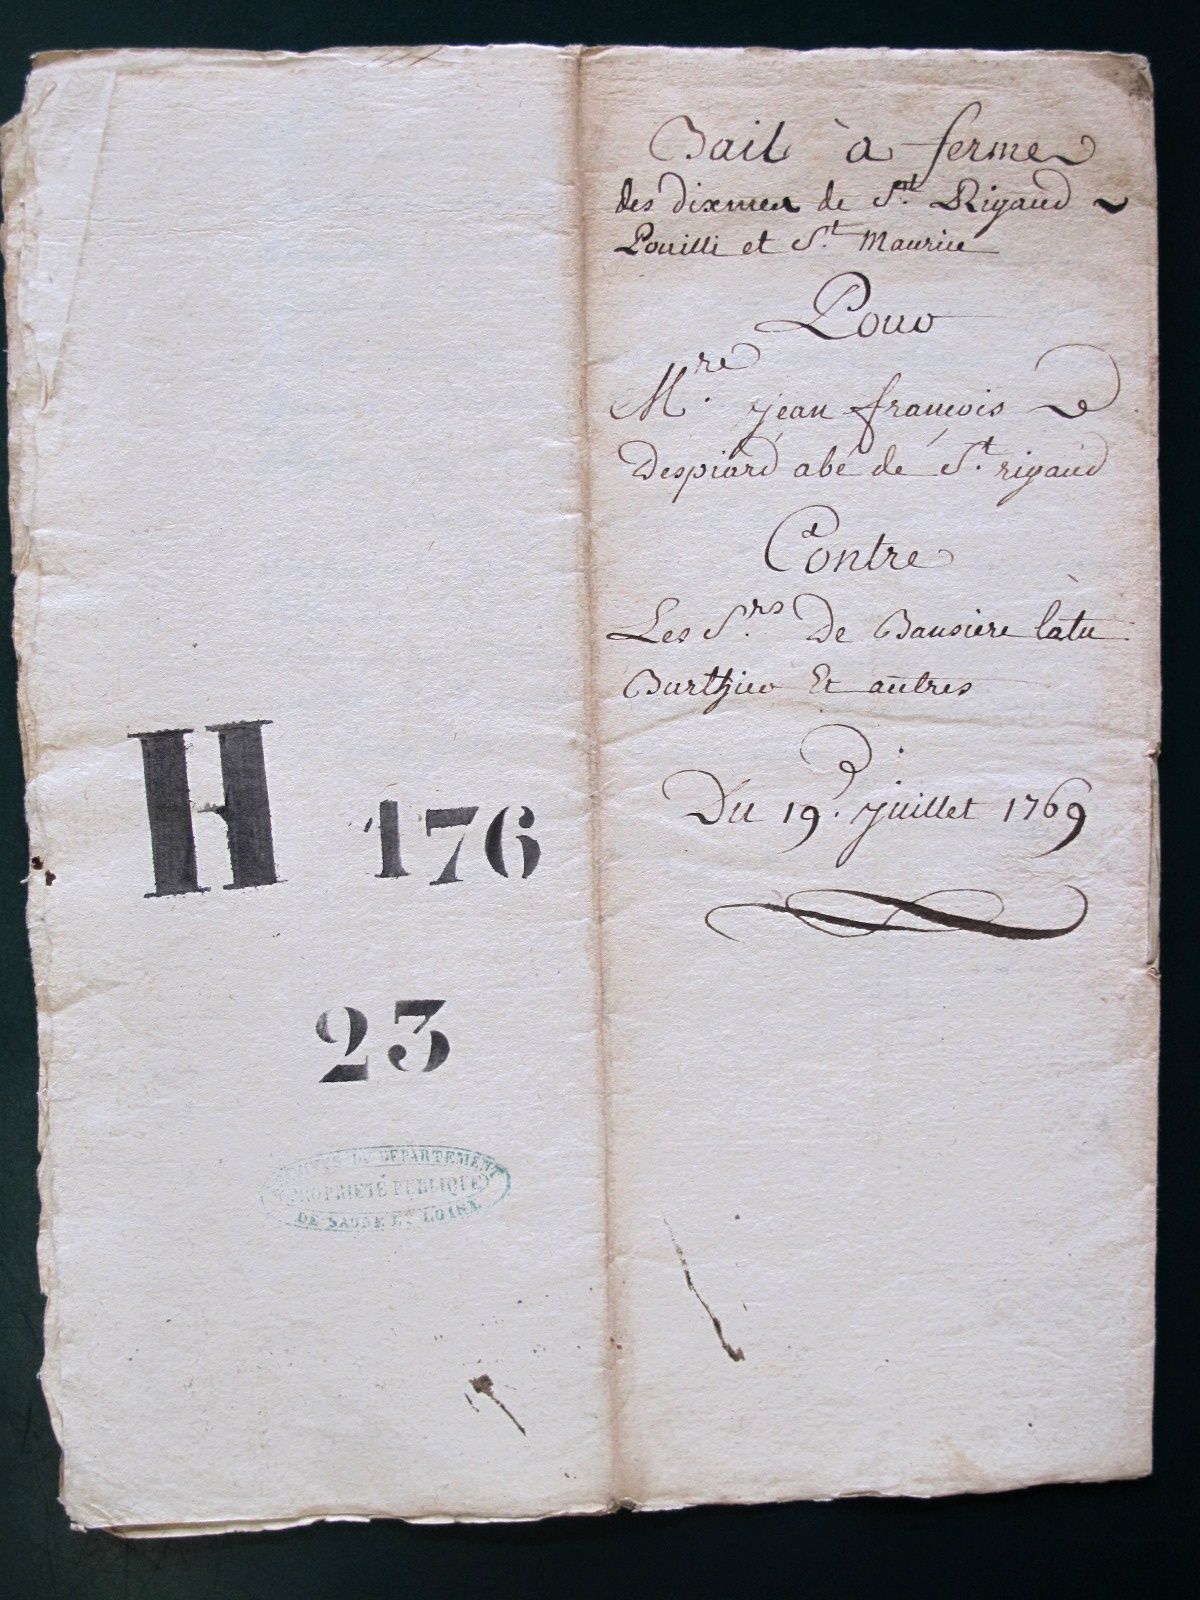 Bail à ferme
des dixmes de St. Rigaud
Pouilli et St. Maurice
Pour
Mre. jean françois
Despiard abé de St. rigaud
Contre
Les Srs. De Bausiere latu
Burthier Et autres
Du 19e. juillet 1769
H 176
23
ARCHIVES DU DEPARTEMENT
PROPRIETÉ PUBLIQUE
DE SAONE ET LOIRE